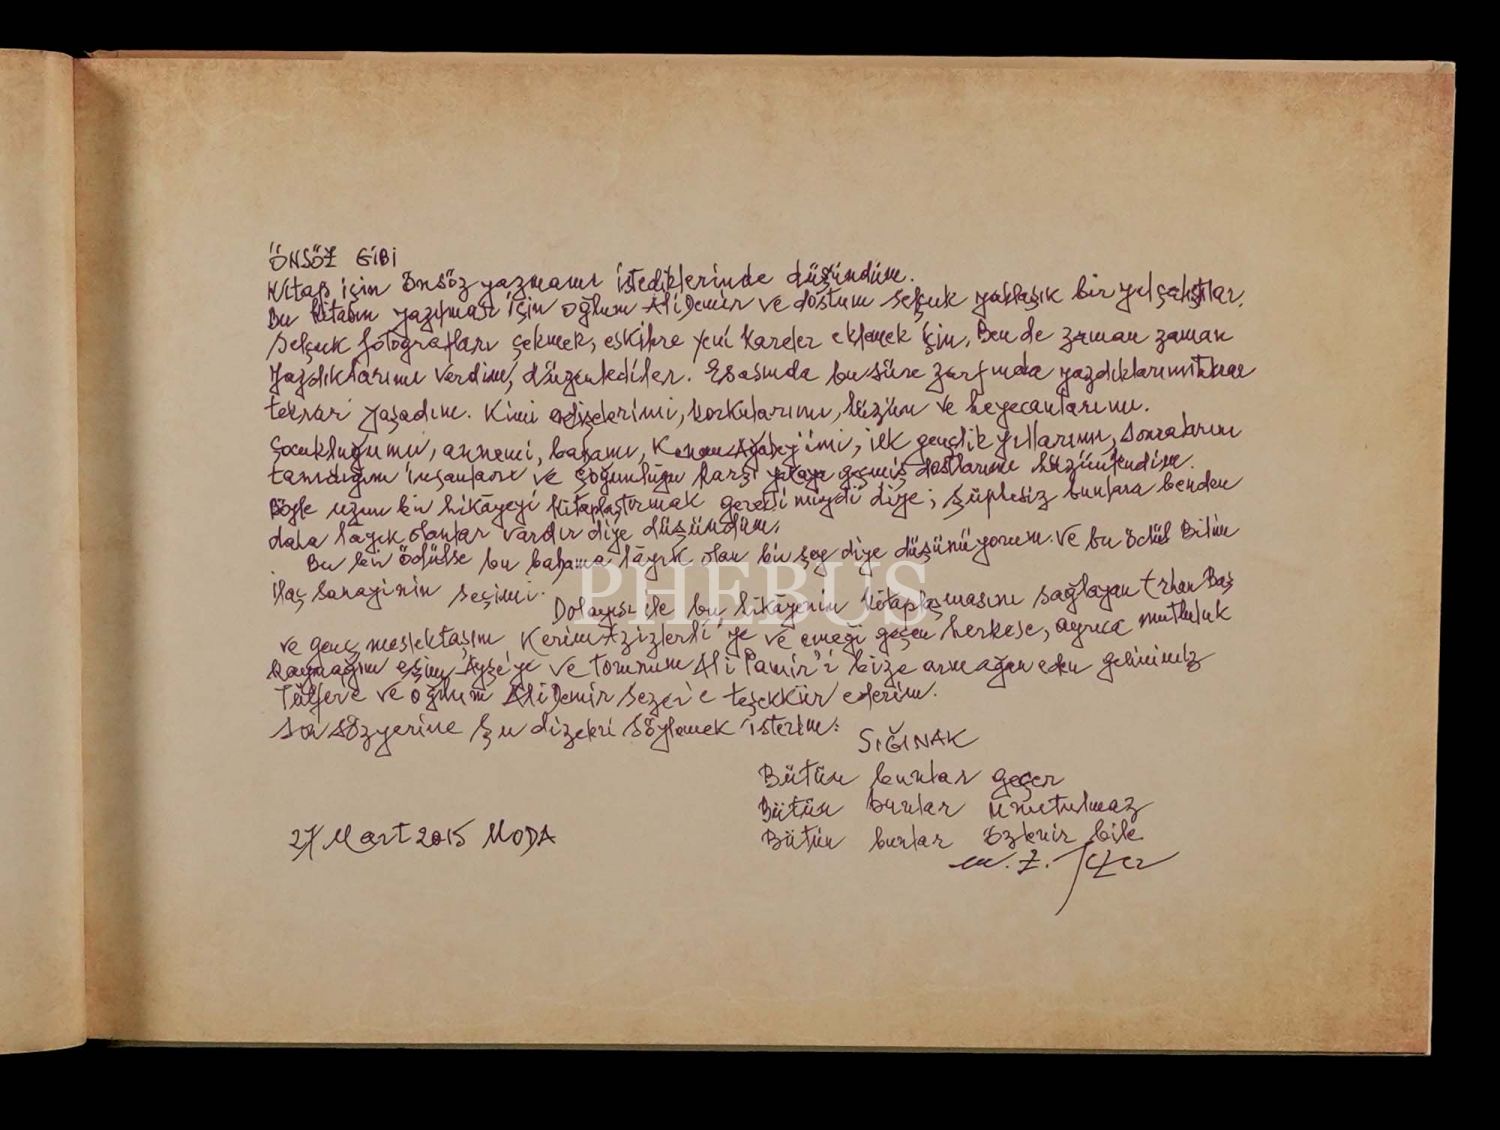 ÖNSÖZ GİBİ
Kitap için önsöz yazmamı istediklerinde düşündüm.
Bu kitabın yazılması için oğlum Ali Demir ve dostum Selçuk yaklaşık bir yıl çalıştılar.
Selçuk fotoğrafları çekmek, eskilere yeni kareler eklemek için, Ben de zaman zaman
Yazdıklarımı verdim, düzenlediler. Esasında bu süre zarfında yazdıklarımı tekrar
tekrar yaşadım. Kimi endişelerimi, korkularımı, hüzün ve heyecanlarımı.
Çocukluğumu, annemi, babamı, Kenan Ağabey'imi, ilk gençlik yıllarımı, sonraları
tanıdığım insanları ve çoğunluğu karşı yakaya geçmiş dostlarımı hüzünlendim.
Böyle uzun bir hikâyeyi kitaplaştırmak gerekli miydi diye; şüphesiz bunlara benden
daha layık olanlar vardır diye düşündüm.
Bu bir ödülse bu babama layık olan bir şey diye düşünüyorum. Ve bu ödül Bilim
İlaç Sanayinin seçimi.
PHEBUS
Dolayısı ile bu hikayenin kitaplaşmasını sağlayan Erhan Baş
ve genç meslektaşım Kerim Azizlerli'ye ve emeği geçen herkese, ayrıca mutluluk
kaynağım eşim Ayşe'ye ve torunum Ali Pamir'i bize armağan eden gelinimiz
ve oğlum Ali Demir Sezer'e teşekkür ederim.
Son söz yerine şu dizeleri söylemek isterim:
SIĞINAK
Bütün bunlar geçer
Bütün bunlar unutulmaz
Bütün bunlar özlenir bile
27 Mart 2015 MODA
M. Z. Sezer